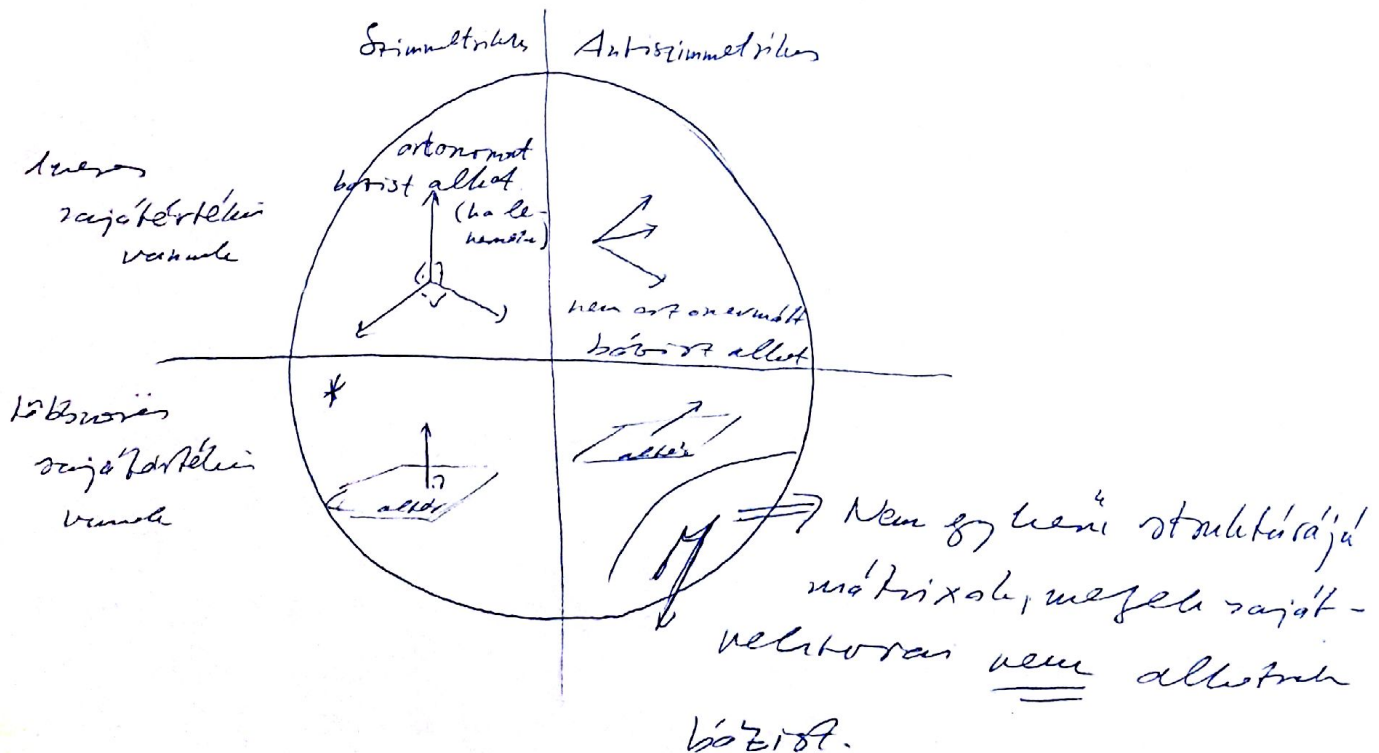 Szimmetrikus
Antiszimmetrikus
1szeres
sajátértékei
vannak
ortonormált
bázist alkot
(ha le-
nem ortonormált
bázist alkot
többszörös
sajátértékei
vannak
*
altér
altér
⇒ Nem egyszerű struktúrájú
mátrixok, melyek saját-
vektorai nem alkotnak
bázist.